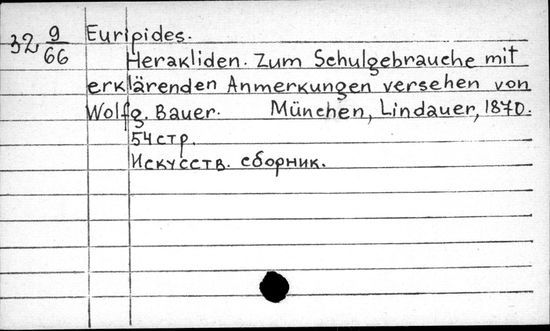 32 9/66 Euripides.
Herakliden. Zum Schulgebrauche mit
erklärenden Anmerkungen versehen von
Wolfg. Bauer. München, Lindauer, 1870.
54 стр.
Искусств. сборник.